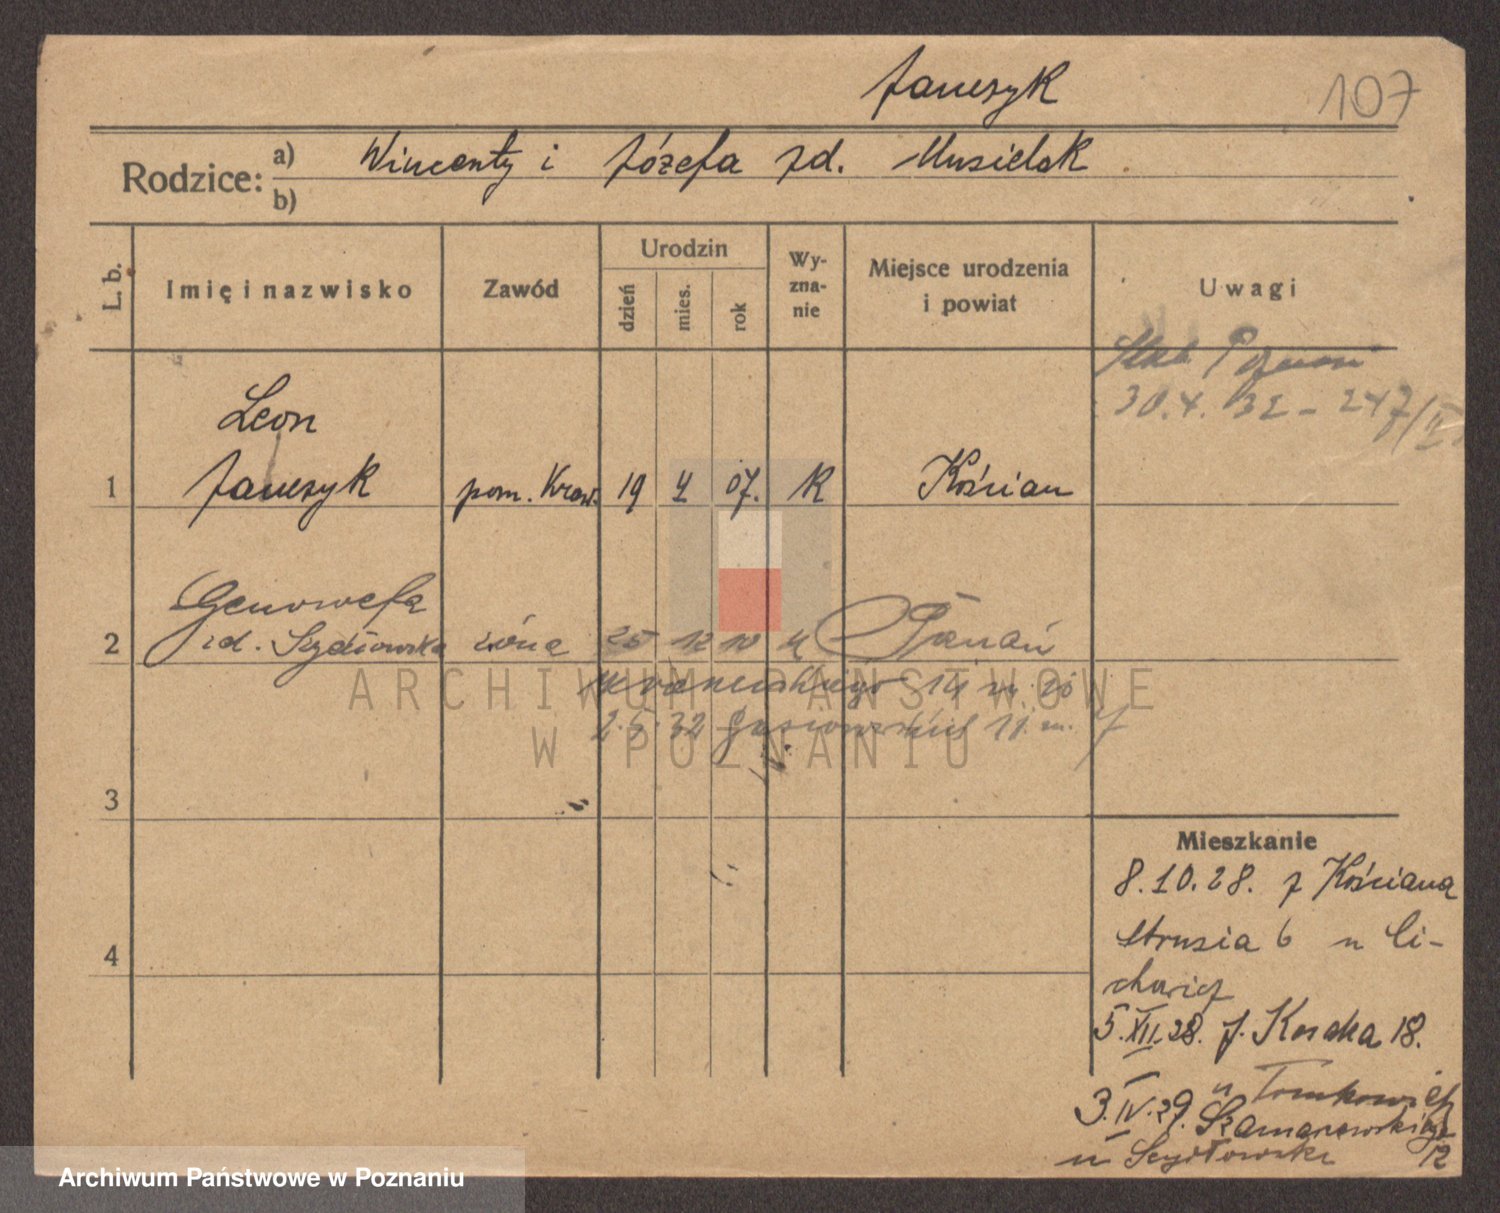 Janczyk
107
Rodzice: a) Wincenty i Józefa zd. Musielak
b)
L. b.
Imię i nazwisko
Zawód
Urodzin
dzień
mies.
rok
Wy-
zna-
nie
Miejsce urodzenia
i powiat
Uwagi
30.4. 32 - 247/II
Leon
1 Janczyk pom. Kraw. 19 4 07. R Kościan
Genowefa
2 zd. Szydłowska żona 25 12 10 Poznań
14 m. 20
2.5.32 11 m.
3
4
Mieszkanie
8.10.28. z Kościana
Strusia 6 u Ci-
chowicz
5.XII.28. J. Kossaka 18.
u Tomkowicz
3.IV.29. Szamarzewskiego
u Szydłowski 12
ARCHIWUM PAŃSTWOWE
W POZNANIU
Archiwum Państwowe w Poznaniu